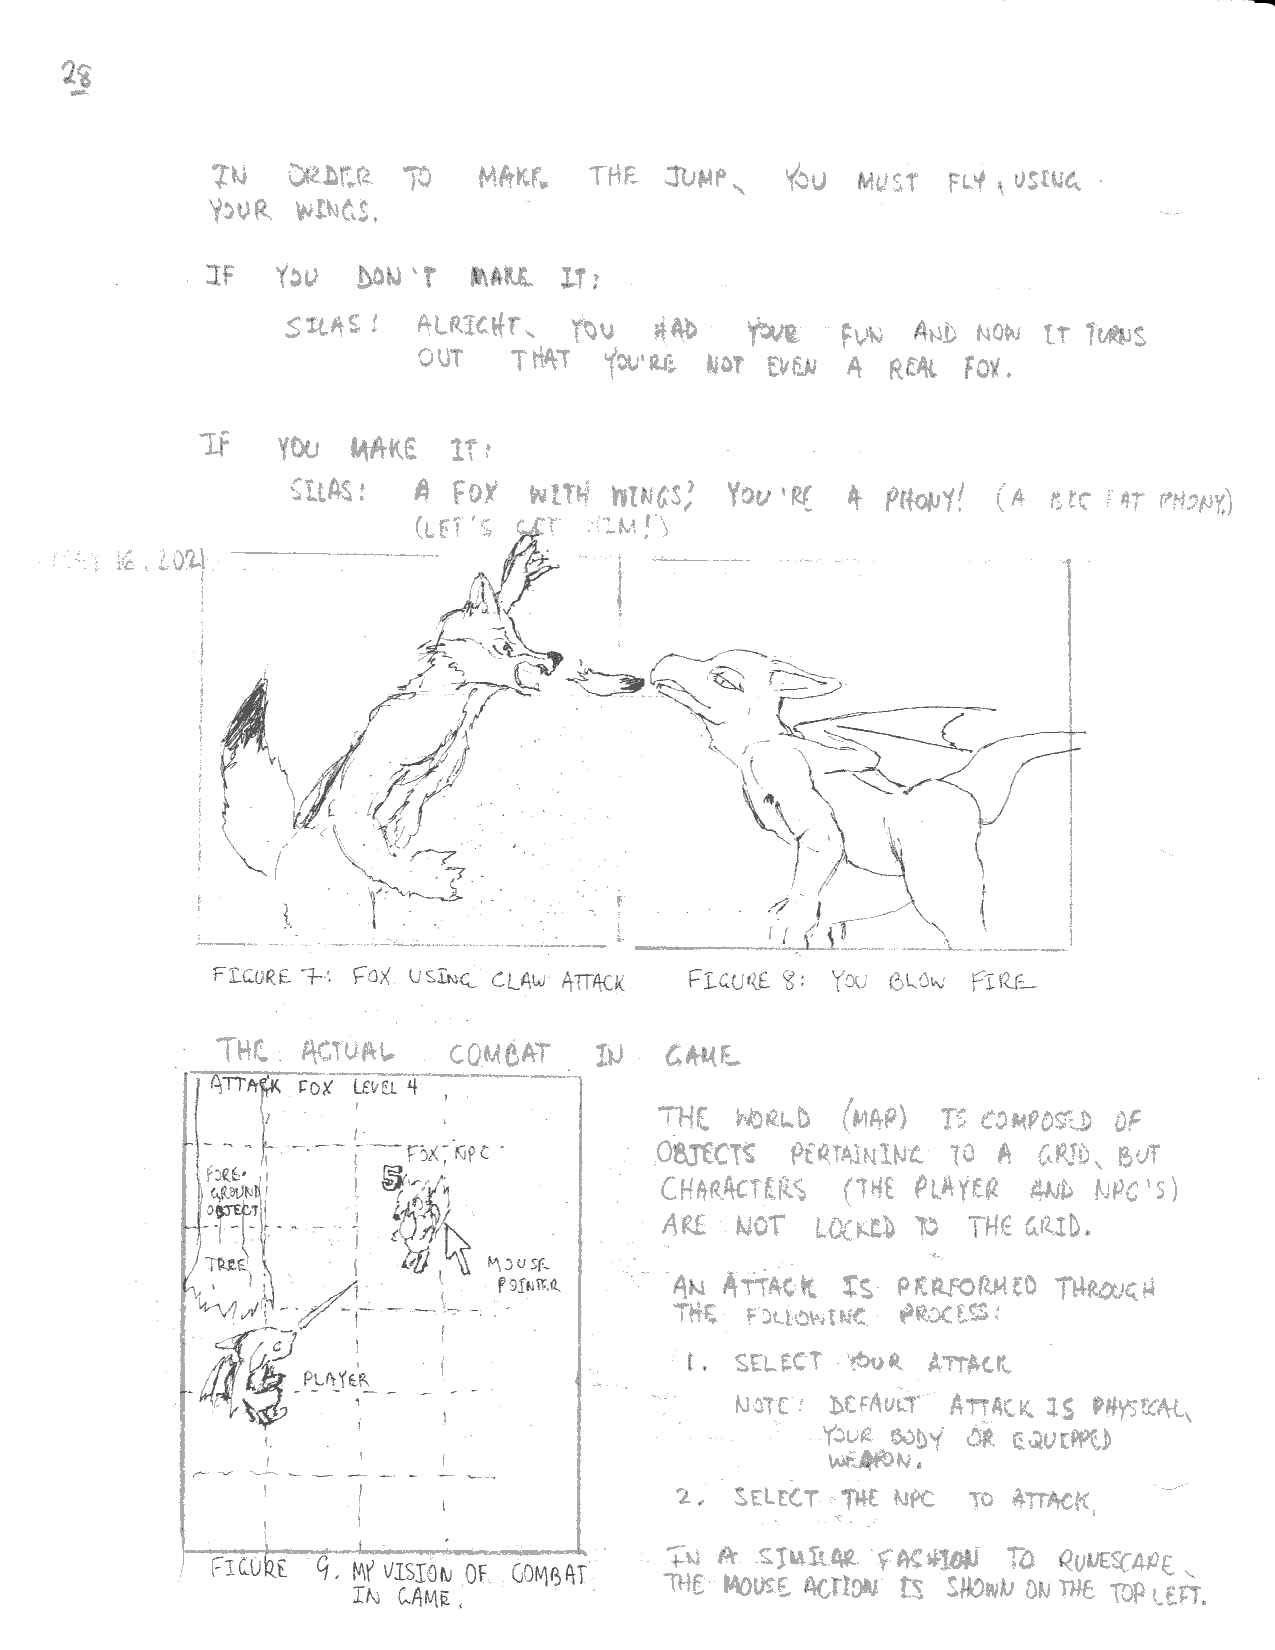 28
IN ORDER TO MAKE THE JUMP, YOU MUST FLY, USING
YOUR WINGS.
IF YOU DON'T MAKE IT:
SILAS: ALRIGHT, YOU HAD YOUR FUN AND NOW IT TURNS
OUT THAT YOU'RE NOT EVEN A REAL FOX.
IF YOU MAKE IT:
SILAS: A FOX WITH WINGS? YOU'RE A PHONY! (A BIG FAT PHONY)
(LET'S GET HIM!)
16, 2021
FIGURE 7: FOX USING CLAW ATTACK
FIGURE 8: YOU BLOW FIRE
THE ACTUAL COMBAT IN GAME
ATTACK FOX LEVEL 4
FOX, NPC
5
FORE-
GROUND
OBJECT
TREE
MOUSE
POINTER
PLAYER
FIGURE 9. MY VISION OF COMBAT
IN GAME.
THE WORLD (MAP) IS COMPOSED OF
OBJECTS PERTAINING TO A GRID, BUT
CHARACTERS (THE PLAYER AND NPC'S)
ARE NOT LOCKED TO THE GRID.
AN ATTACK IS PERFORMED THROUGH
THE FOLLOWING PROCESS:
1. SELECT YOUR ATTACK
NOTE: DEFAULT ATTACK IS PHYSICAL,
YOUR BODY OR EQUIPPED
WEAPON.
2. SELECT THE NPC TO ATTACK.
IN A SIMILAR FASHION TO RUNESCAPE,
THE MOUSE ACTION IS SHOWN ON THE TOP LEFT.